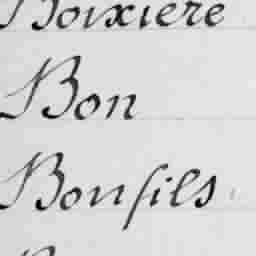 Boixiere
Bon
Bonfils